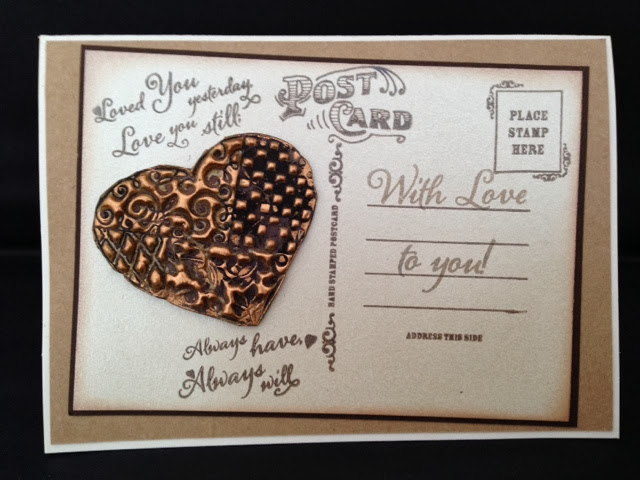 Loved You yesterday
Love you still:
Always have,
Always will
POST
CARD
HAND STAMPED POSTCARD
PLACE
STAMP
HERE
With Love
to you!
ADDRESS THIS SIDE